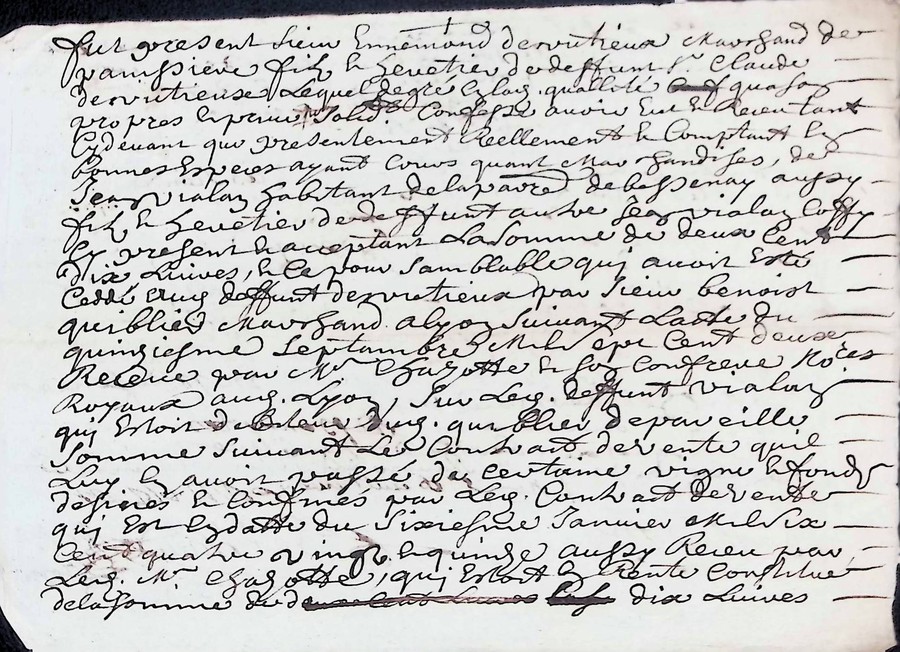 fut present sieur Ennemond desvutieux marchand de
vaurssieux fils et heretier de deffunt sr. Claude
desvutieux lequel de gre en lad. quallité et quason
propres et prive solid. Confesse avoir eut et Receu tant
Cydevant que presentement Reellement et Comptant en
bonnes especes ayant Cours quant marchandises, de
Jean vialon habitant de la parre. de bessenay aussy
fils et heretier de deffunt autre Jean vialon
Cy present et acceptant La somme de deux Cent
dix Livres, et Ce pour samblable quj avoit Esté
Ceddé aud. deffunt desvutieux par sieur benoist
quiblier marchand a lyon suivant Lacte du
quinziesme septambre mil sept Cent deux
Receue par Mr. Chazotte et son Confrere No.res
Royaux aud. Lyon, sur Led. deffunt vialon
quj Estoit debiteur dud. quiblier de pareille
somme suivant Le Contraict de vente quil
Luy en avoit passé de certaine vigne et fonds
desinés et Confinés par Led. Contract de vente
quj Est en datte du sixiesme Janvier mil six
Cent quatre vingt et quinze aussy Receu par
Led. Mr. Chazotte, quj Estoit En Rente Constitué
de la somme de deux Cent Livres dix Livres